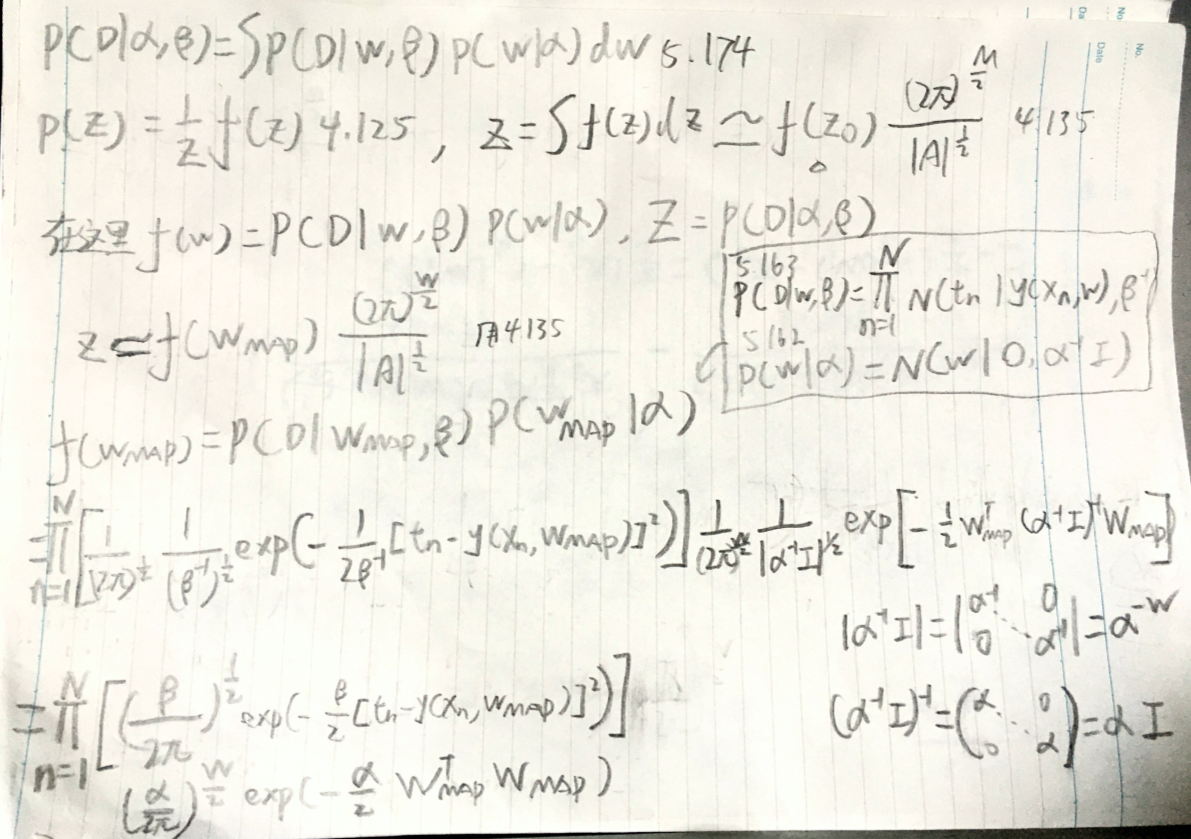 p(D|α,β)=∫p(D|w,β) p(w|α) dw 5.174
p(z) = 1/z f(z) 4.125 , z=∫f(z)dz ≃ f(z₀) (2π)^(M/2) / |A|^(1/2) 4.135
在这里 f(w) = p(D|w,β) p(w|α), Z = p(D|α,β)
5.163
p(D|w,β)=∏_{n=1}^{N} N(tn|y(xn,w),β⁻¹
5.162
p(w|α) = N(w|0,α⁻¹I)
z ≃ f(wMAP) (2π)^(W/2) / |A|^(1/2) 用4.135
f(wMAP) = p(D|wMAP,β) p(wMAP|α)
=∏_{n=1}^{N} [1/(2π)^(1/2) 1/(β⁻¹)^(1/2) exp(-1/(2β⁻¹) [tn-y(xn,wMAP)]²)] 1/(2π)^(W/2) 1/|α⁻¹I|^(1/2) exp[-1/2 wᵀMAP (α⁻¹I)⁻¹ wMAP]
|α⁻¹I| = |α⁻¹ 0 ⋱ 0 α⁻¹| = α^(-W)
=∏_{n=1}^{N} [(β/2π)^(1/2) exp(-β/2 [tn-y(xn,wMAP)]²)]
(α⁻¹I)⁻¹ = (α 0 ⋱ 0 α) = αI
(α/2π)^(W/2) exp(-α/2 wᵀMAP wMAP)
No.
Date